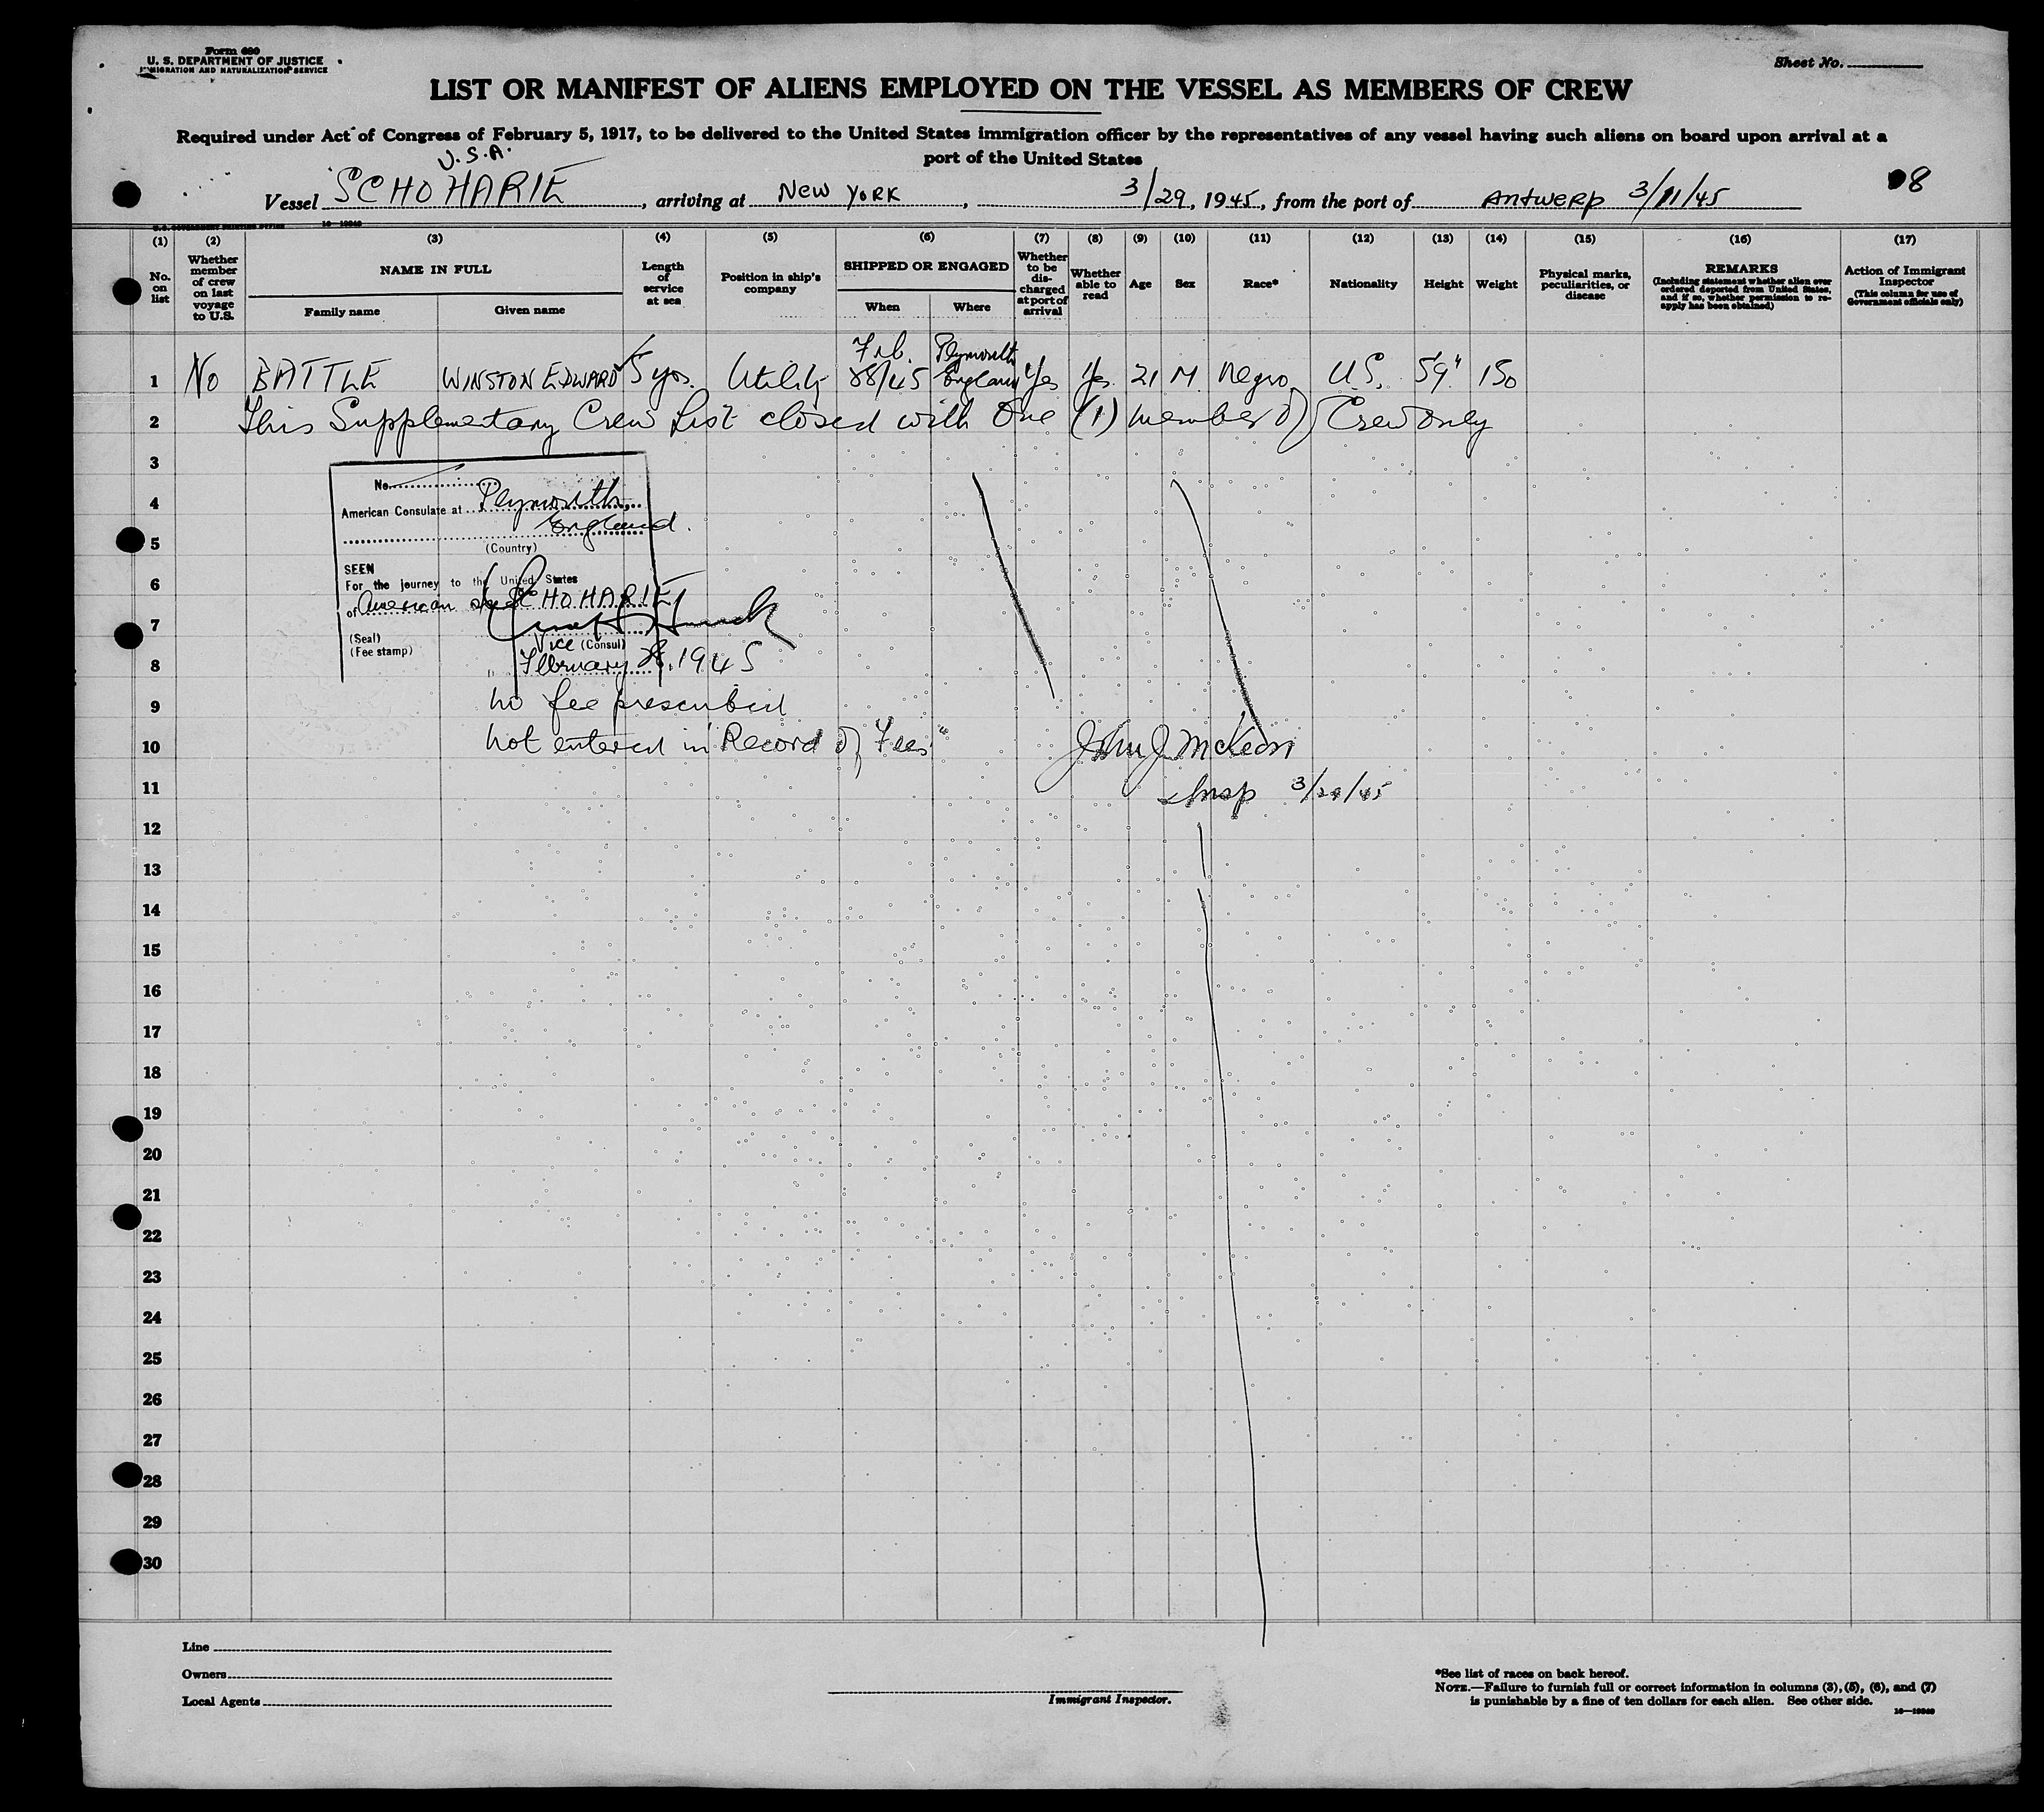 Form 680
U. S. DEPARTMENT OF JUSTICE
IMMIGRATION AND NATURALIZATION SERVICE
Sheet No.
LIST OR MANIFEST OF ALIENS EMPLOYED ON THE VESSEL AS MEMBERS OF CREW
Required under Act of Congress of February 5, 1917, to be delivered to the United States immigration officer by the representatives of any vessel having such aliens on board upon arrival at a
port of the United States
U.S.A.
Vessel SCHOHARIE, arriving at New York, 3/29, 1945, from the port of Antwerp 3/11/45
8
(1) (2) (3) (4) (5) (6) (7) (8) (9) (10) (11) (12) (13) (14) (15) (16) (17)
No. on list
Whether member of crew on last voyage to U.S.
NAME IN FULL
Family name
Given name
Length of service at sea
Position in ship's company
SHIPPED OR ENGAGED
When
Where
Whether to be discharged at port of arrival
Whether able to read
Age
Sex
Race*
Nationality
Height
Weight
Physical marks, peculiarities, or disease
REMARKS
(Including statement whether alien ever ordered deported from United States, and if so, whether permission to reapply has been obtained)
Action of Immigrant Inspector
(This column for use of Government officials only)
1 No BATTLE WINSTON EDWARD 5 yrs. Utility Feb. /45 Plymouth England Yes Yes 21 M. Negro U.S. 5'9" 150
2 This Supplementary Crew List closed with One (1) member of Crew only
3
No.
4
American Consulate at Plymouth
England.
5
(Country)
SEEN
6
For the journey to the United States
of American SCHOHARIE
7
(Seal)
Vice (Consul)
(Fee stamp)
8
February 28, 1945
9 no fee prescribed
10 not entered in "Record of Fees"
John J. McKeon
11
Insp 3/29/45
12
13
14
15
16
17
18
19
20
21
22
23
24
25
26
27
28
29
30
Line
Owners
Local Agents
Immigrant Inspector.
*See list of races on back hereof.
NOTE.—Failure to furnish full or correct information in columns (3), (5), (6), and (7)
is punishable by a fine of ten dollars for each alien. See other side.